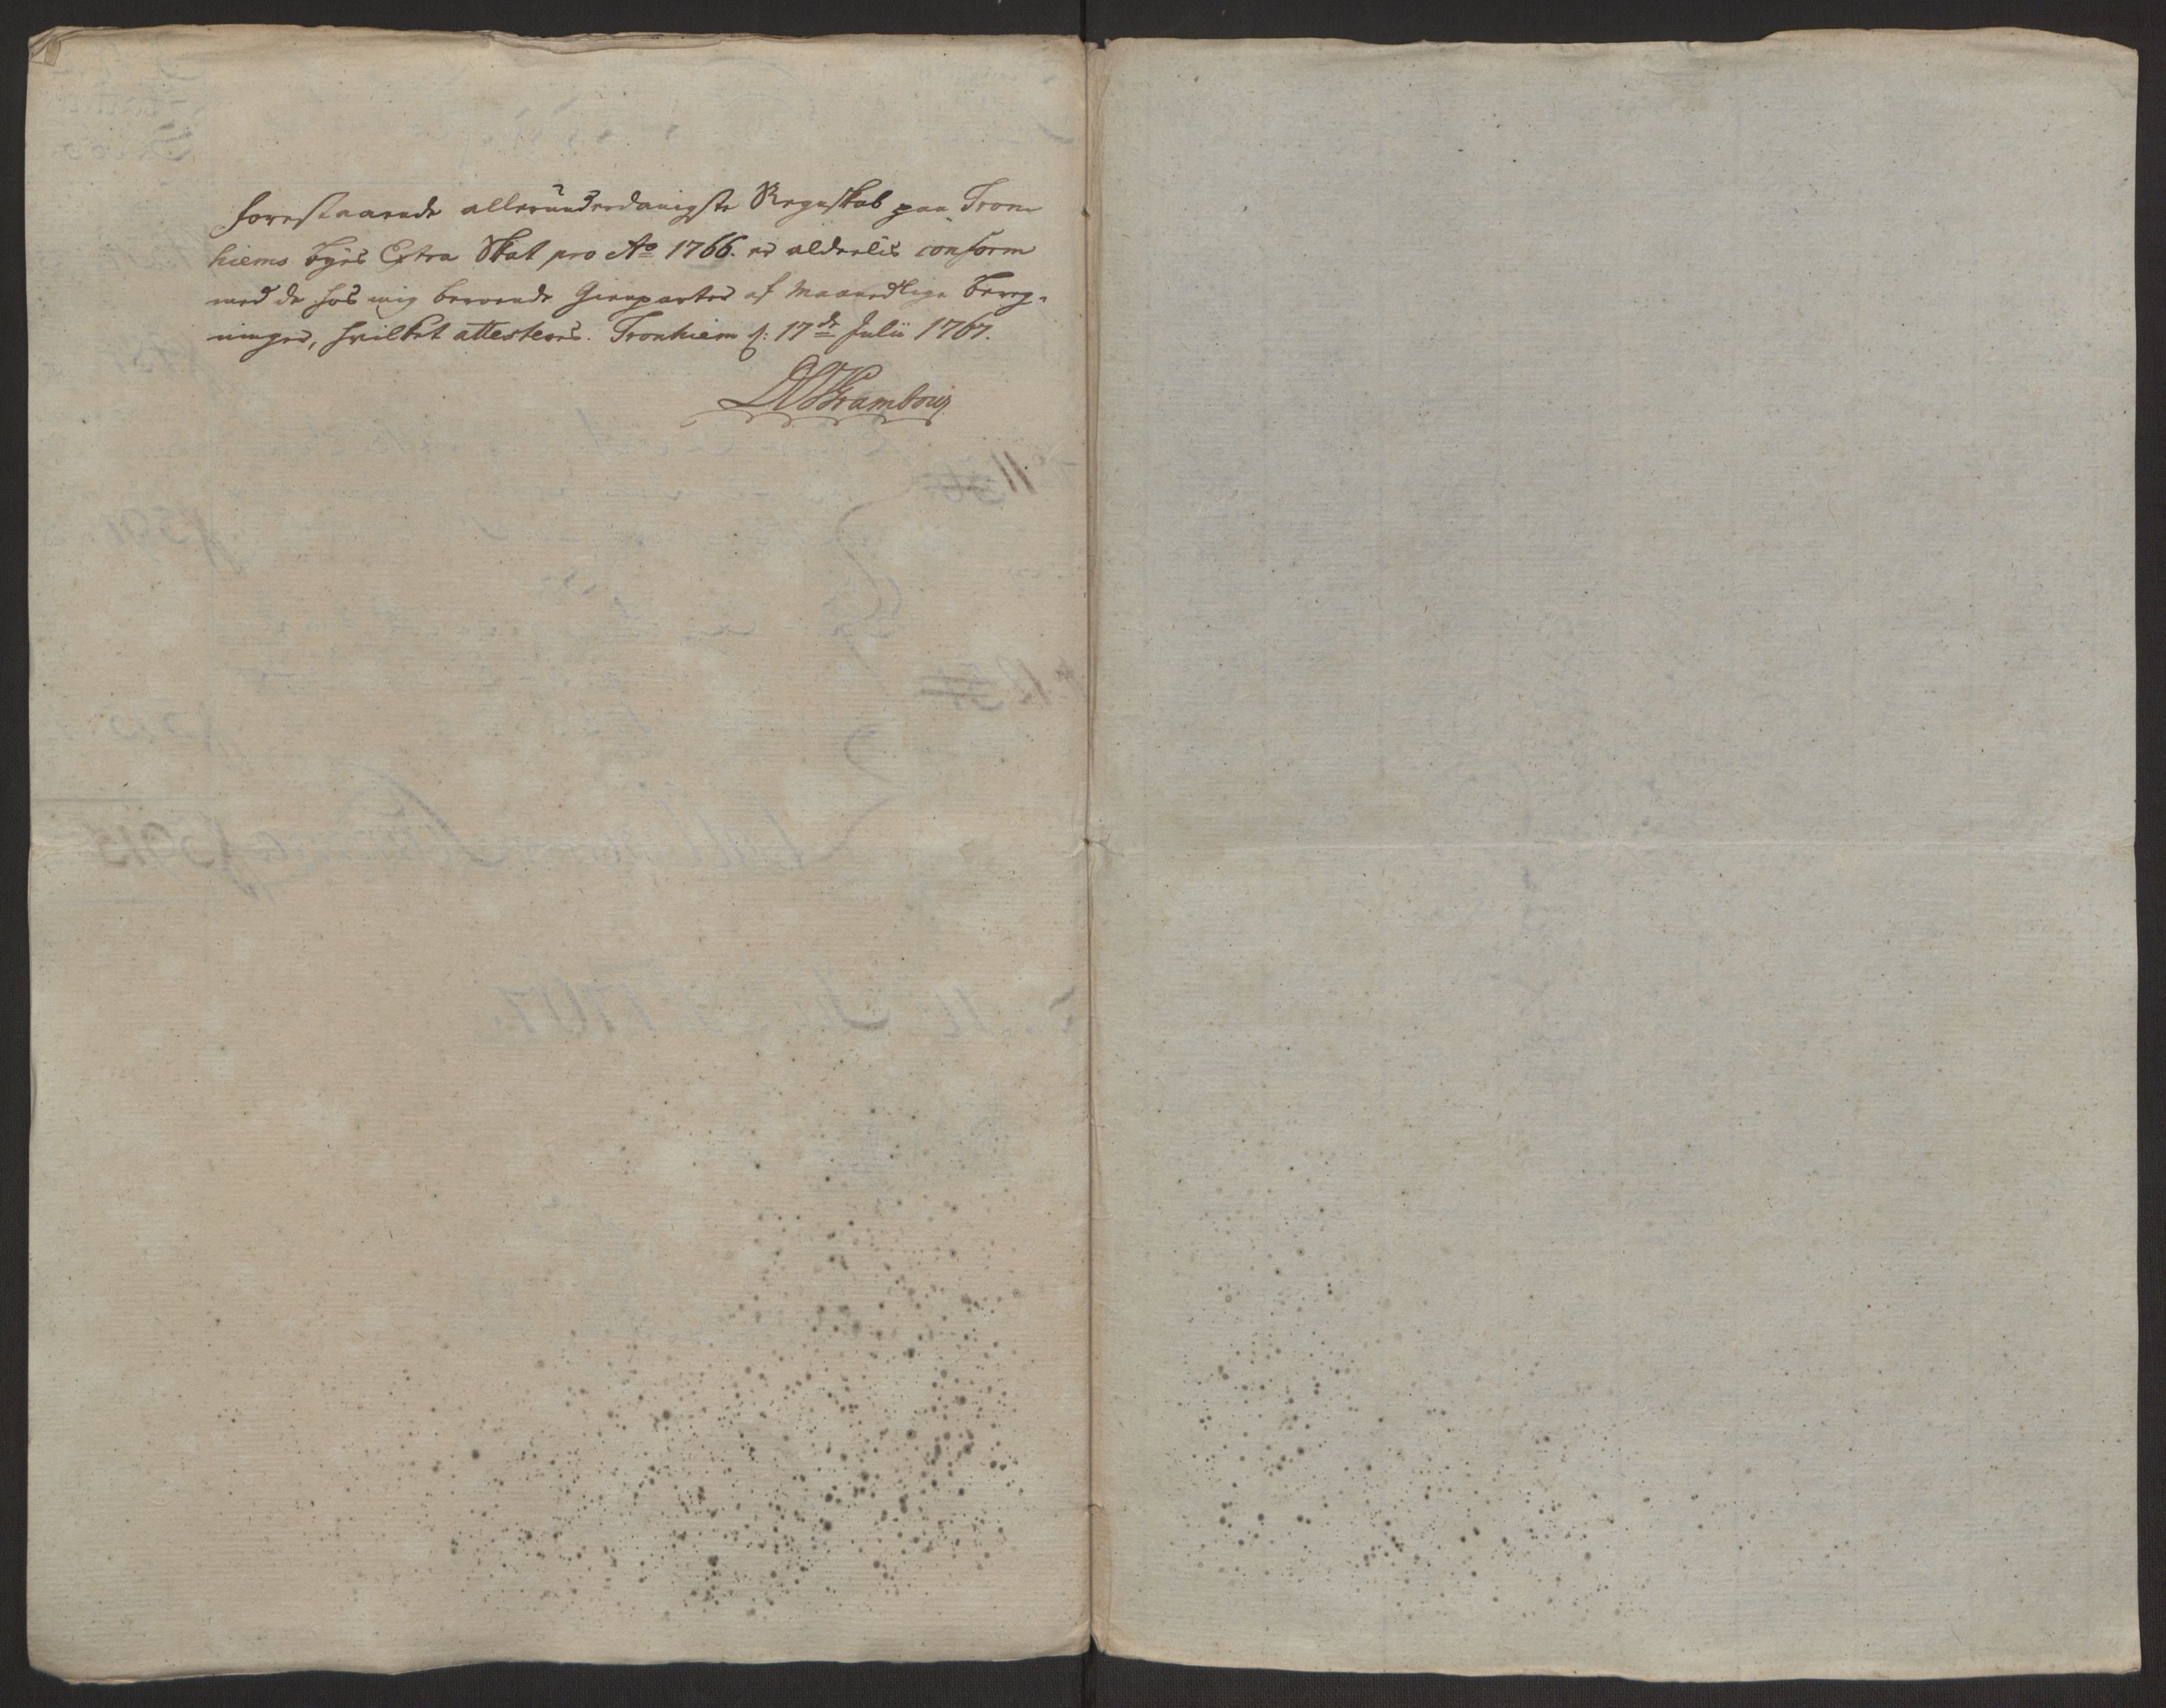 forestaaende allerunderdanigste Regnskab paa Tron-
hiems Byes Extra Skat pro Ao 1766. er aldeelis conform
med de hos mig beroende Gienparter af Maanedlige Bereg-
ninger, hvilket attesteres. Tronhiem d: 17de Julii 1767.